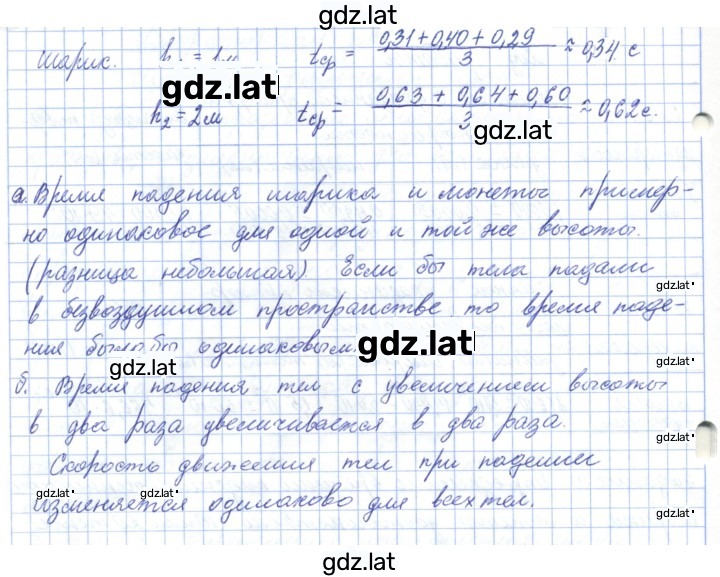 gdz.lat
шарик. h = 1м tср = 0,31+0,40+0,29 / 3 ≈ 0,34 с
gdz.lat
h₂ = 2м tср = 0,63 + 0,64 + 0,60 / 3 ≈ 0,62 с.
gdz.lat
а. Время падения шарика и монеты пример-
но одинаковое для одной и той же высоты.
(разница небольшая) Если бы тела падали
gdz.lat
в безвоздушном пространстве то время паде-
ния было бы одинаковым.
gdz.lat
gdz.lat
gdz.lat
б. Время падения тел с увеличением высоты
в два раза увеличивается в два раза.
gdz.lat
Скорость движения тел при падении
gdz.lat gdz.lat
изменяется одинаково для всех тел.
gdz.lat
gdz.lat